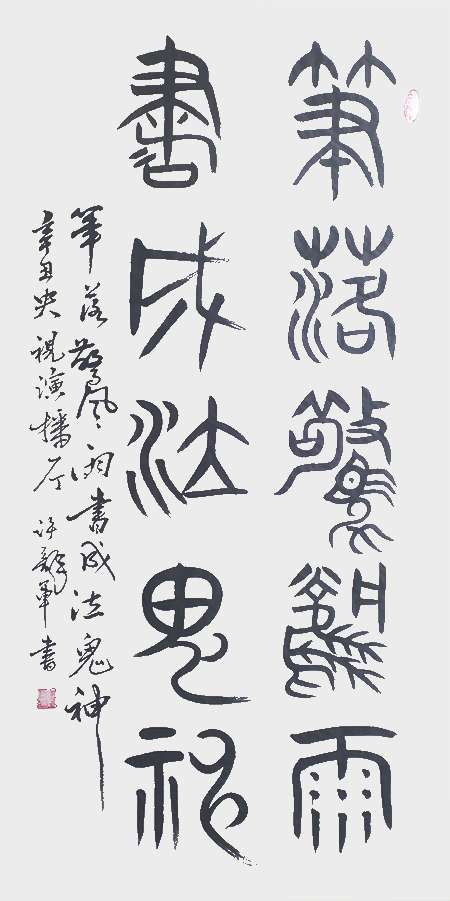 筆落驚風雨
書成法鬼神
筆落驚風雨書成法鬼神
辛丑央視演播厅 許軍書